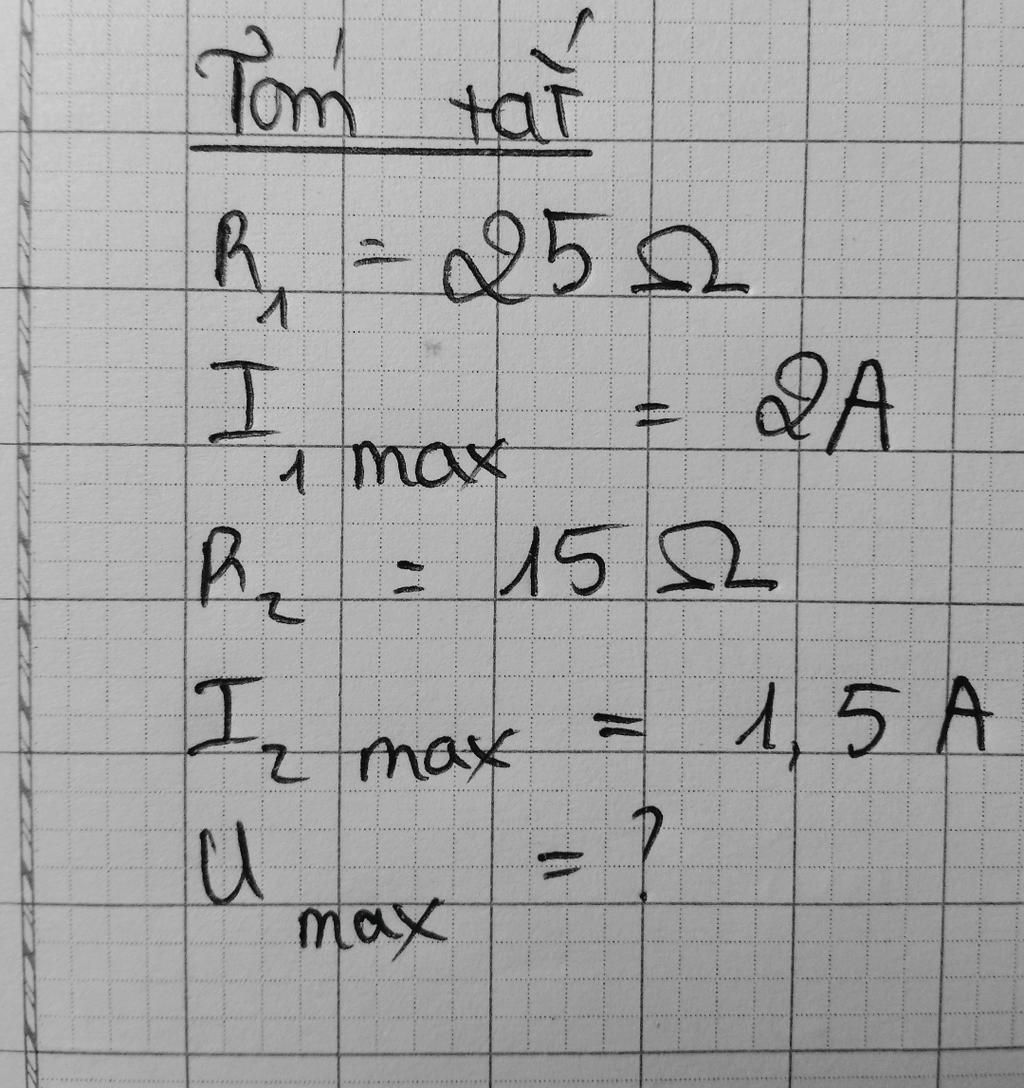 Tóm tắt
R₁ = 25 Ω
I₁ max = 2A
R₂ = 15 Ω
I₂ max = 1,5 A
U max = ?